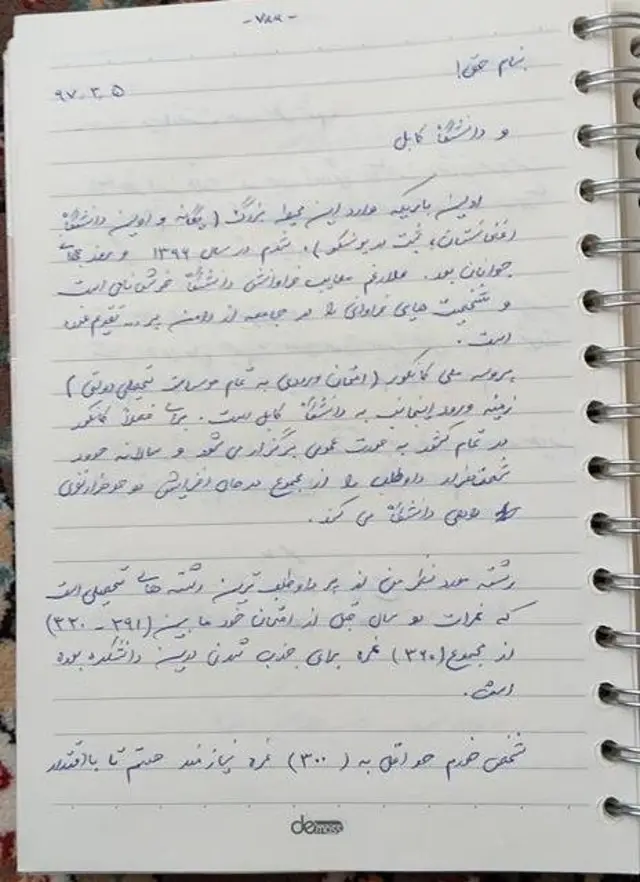 - ۷۸۹ -
بنام حق!
۹۷.۲.۵
و دانشگاه کابل
اولین باریکه وارد این محیط بزرگ (یگانه و اولین دانشگاه
افغانستان، ثبت در یونسکو)، شدم در سال ۱۳۹۶ و
جوانان بود. علارغم معایب فراوانش دانشگاه خوش نامی است
و شخصیت های فراوانی را در جامعه از دامن پر تقدیم نموده
است.
پروسه ملی کانکور (امتحان ورودی به تمام موسسات تحصیلی دولتی)
زمینه ورود اینجانب به دانشگاه کابل است. فعلاً کانکور
در تمام کشور به صورت عمومی برگزار می شود و سالانه حدود
شصت هزار داوطلب را از مجموع درحال افزایش دوصدهزار نفری
راهی دانشگاه می کند.
رشته مورد نظر من از پر داوطلب ترین رشته های تحصیلی است
که نمرات دو سال قبل از امتحان خود ما بین (۲۹۱ - ۳۲۰)
از مجموع (۳۶۰) نمره برای جذب شدن درین دانشکده بوده
است.
شخص خودم حداقل به (۳۰۰) نمره نیازمند هستم تا با اقتدار
demoise